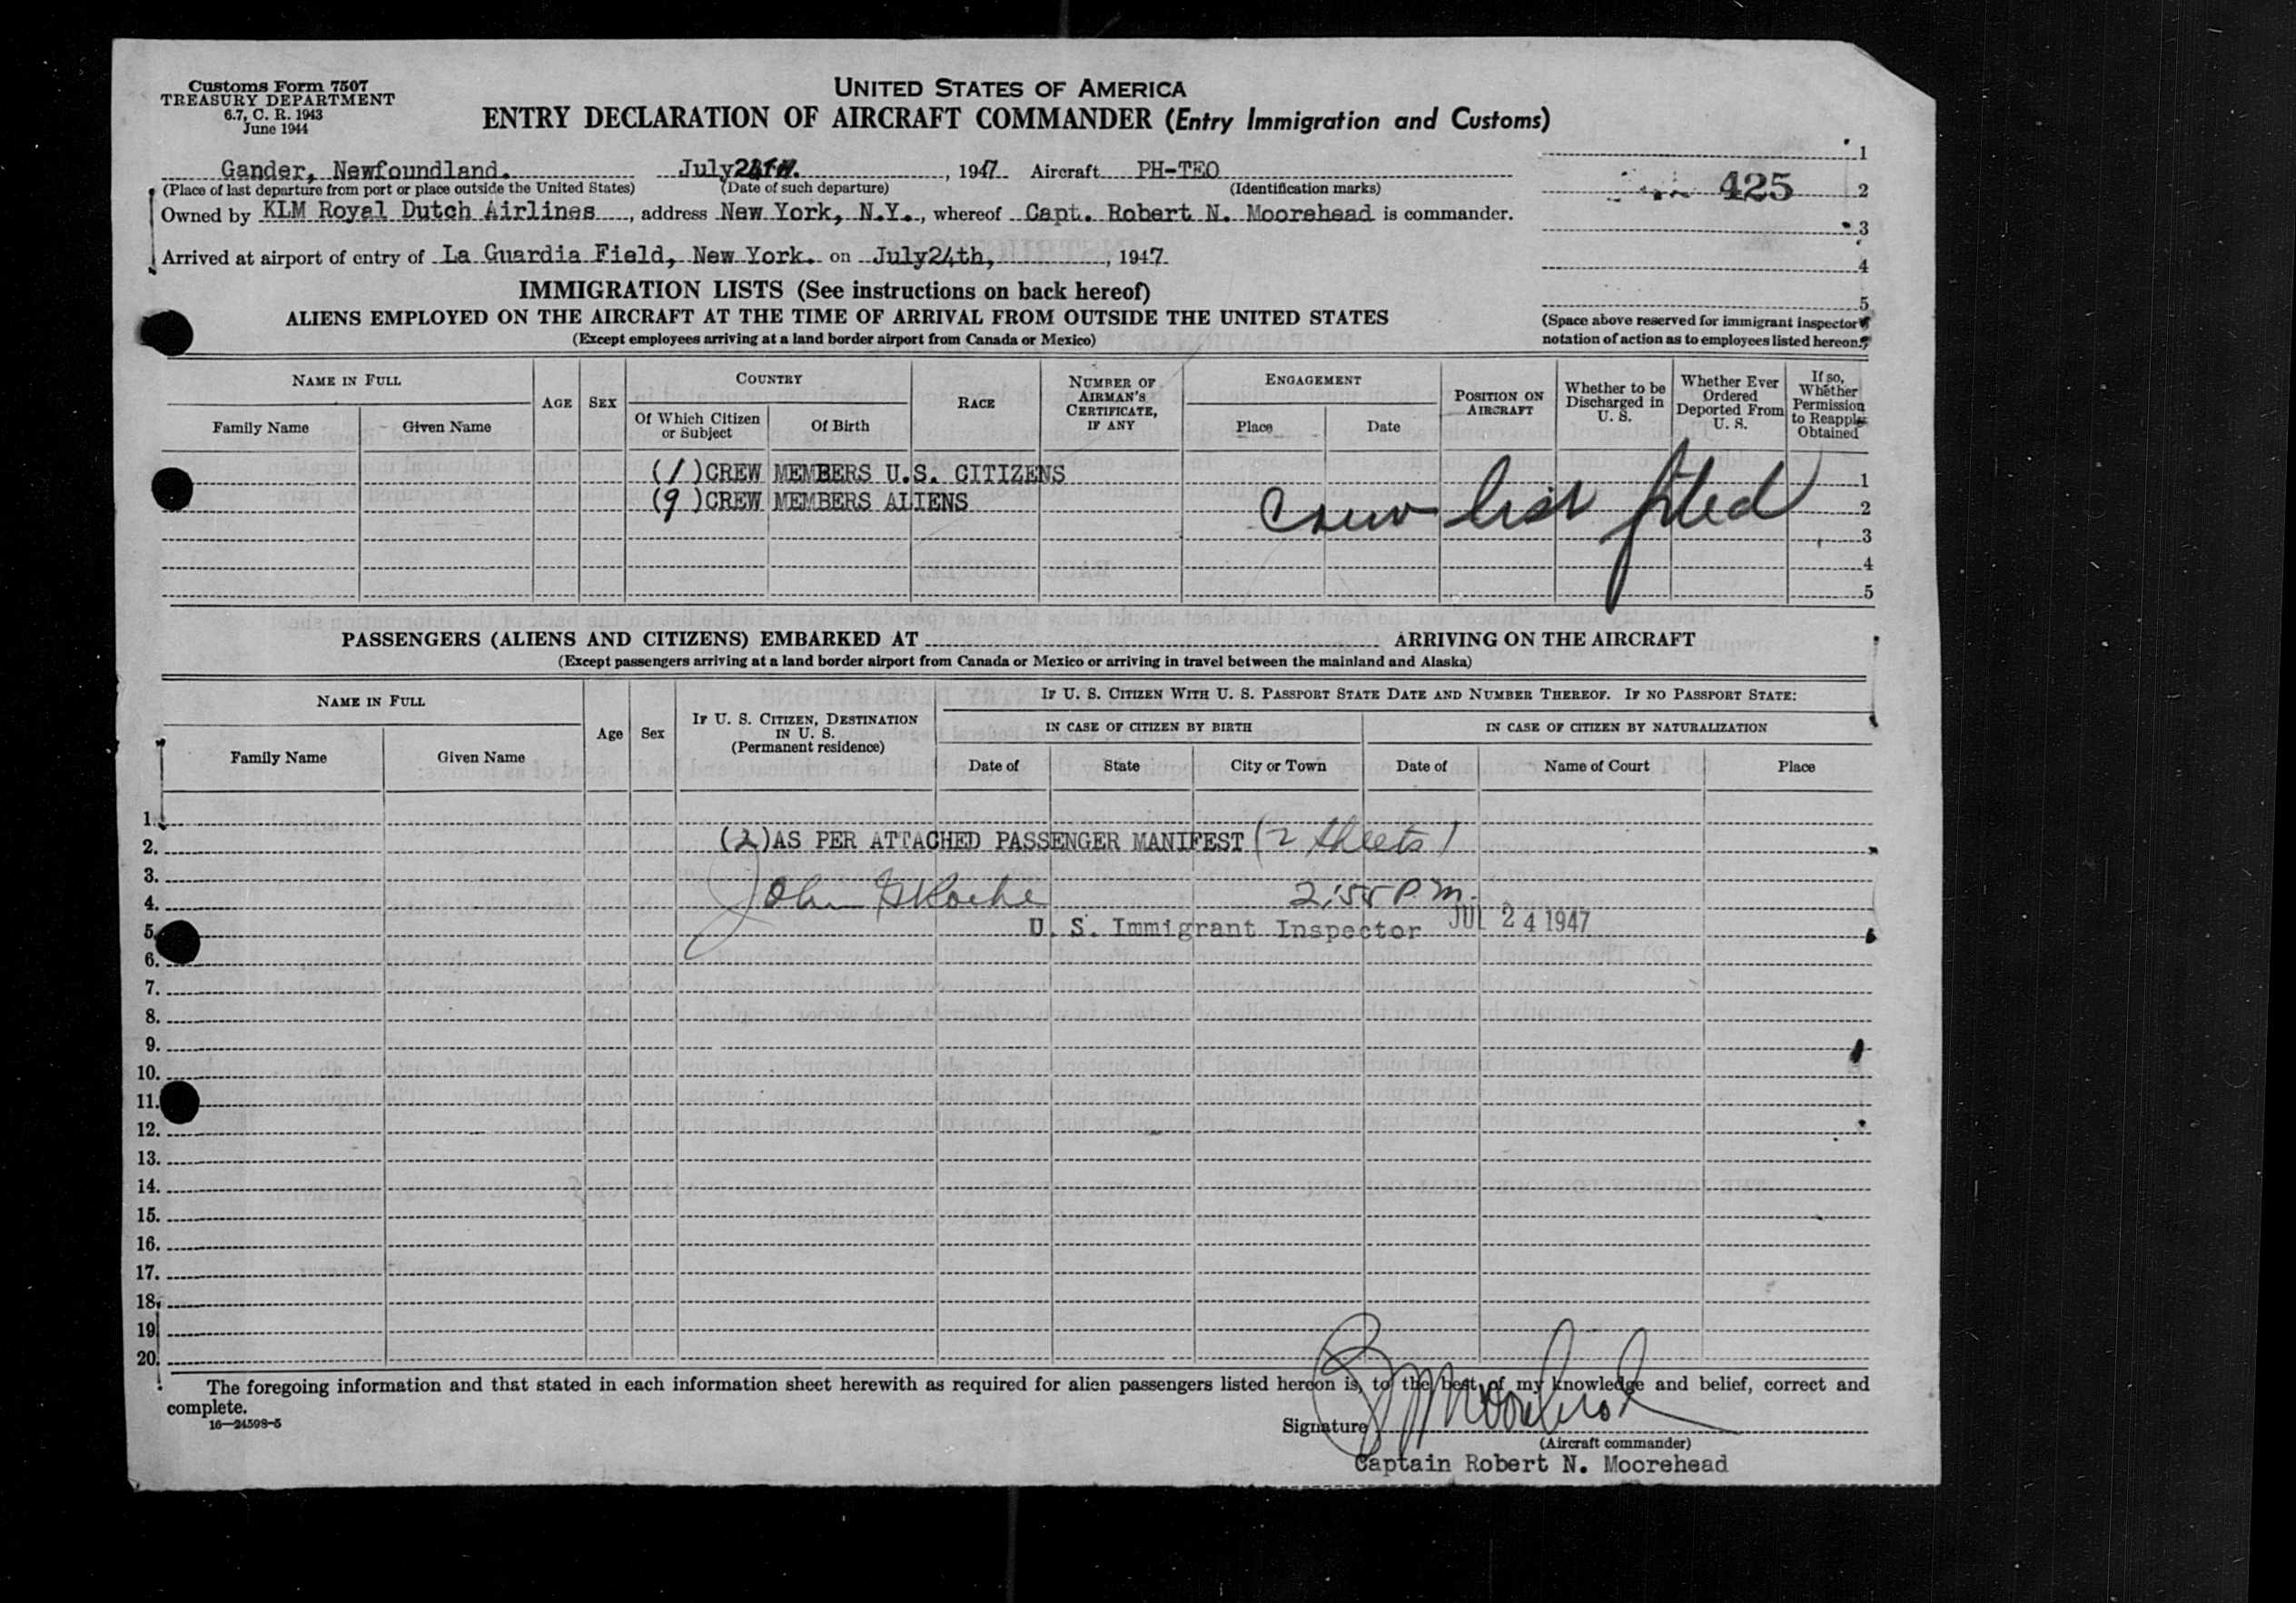 Customs Form 7507
TREASURY DEPARTMENT
6.7, C. R. 1943
June 1944
UNITED STATES OF AMERICA
ENTRY DECLARATION OF AIRCRAFT COMMANDER (Entry Immigration and Customs)
Gander, Newfoundland. July 24th. , 1947 Aircraft PH-TEO
(Place of last departure from port or place outside the United States) (Date of such departure) (Identification marks)
Owned by KLM Royal Dutch Airlines , address New York, N.Y. , whereof Capt. Robert N. Moorehead is commander.
Arrived at airport of entry of La Guardia Field, New York. on July 24th, , 1947
1
425 2
3
4
5
(Space above reserved for immigrant inspector's
notation of action as to employees listed hereon.)
IMMIGRATION LISTS (See instructions on back hereof)
ALIENS EMPLOYED ON THE AIRCRAFT AT THE TIME OF ARRIVAL FROM OUTSIDE THE UNITED STATES
(Except employees arriving at a land border airport from Canada or Mexico)
NAME IN FULL
Family Name Given Name
AGE SEX
COUNTRY
Of Which Citizen or Subject Of Birth
RACE
NUMBER OF AIRMAN'S CERTIFICATE, IF ANY
ENGAGEMENT
Place Date
POSITION ON AIRCRAFT
Whether to be Discharged in U. S.
Whether Ever Ordered Deported From U. S.
If so, Whether Permission to Reapply Obtained
(1) CREW MEMBERS U.S. CITIZENS 1
(9) CREW MEMBERS ALIENS Crew list filed 2
3
4
5
PASSENGERS (ALIENS AND CITIZENS) EMBARKED AT ARRIVING ON THE AIRCRAFT
(Except passengers arriving at a land border airport from Canada or Mexico or arriving in travel between the mainland and Alaska)
NAME IN FULL
Family Name Given Name
Age Sex
IF U. S. CITIZEN, DESTINATION IN U. S. (Permanent residence)
IF U. S. CITIZEN WITH U. S. PASSPORT STATE DATE AND NUMBER THEREOF. IF NO PASSPORT STATE:
IN CASE OF CITIZEN BY BIRTH IN CASE OF CITIZEN BY NATURALIZATION
Date of State City or Town Date of Name of Court Place
1.
2. (2) AS PER ATTACHED PASSENGER MANIFEST (2 sheets)
3.
4. John Roche 2:55 P.M.
5. U. S. Immigrant Inspector JUL 24 1947
6.
7.
8.
9.
10.
11.
12.
13.
14.
15.
16.
17.
18.
19.
20.
The foregoing information and that stated in each information sheet herewith as required for alien passengers listed hereon is, to the best of my knowledge and belief, correct and
complete.
16—24598-5
Signature R N Moorehead
(Aircraft commander)
Captain Robert N. Moorehead